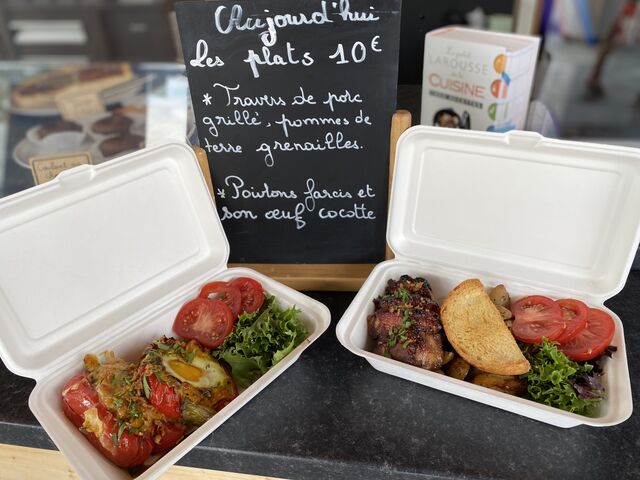 Aujourd'hui
les plats 10€
* Travers de porc
grillé, pommes de
terre grenailles.
* Poivrons farcis et
son œuf cocotte
LAROUSSE
CUISINE